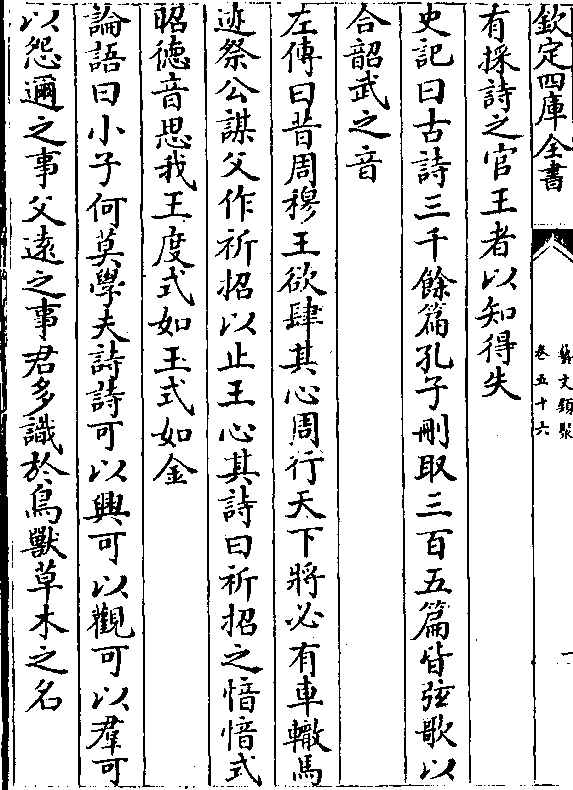 欽定四庫全書
藝文類聚
卷五十六
一
有採詩之官王者以知得失
史記曰古詩三千餘篇孔子刪取三百五篇皆弦歌以
合韶武之音
左傳曰昔周穆王欲肆其心周行天下將必有車轍馬
迹祭公謀父作祈招以止王心其詩曰祈招之愔愔式
昭徳音思我王度式如玉式如金
論語曰小子何莫學夫詩詩可以興可以觀可以羣可
以怨邇之事父遠之事君多識於鳥獸草木之名